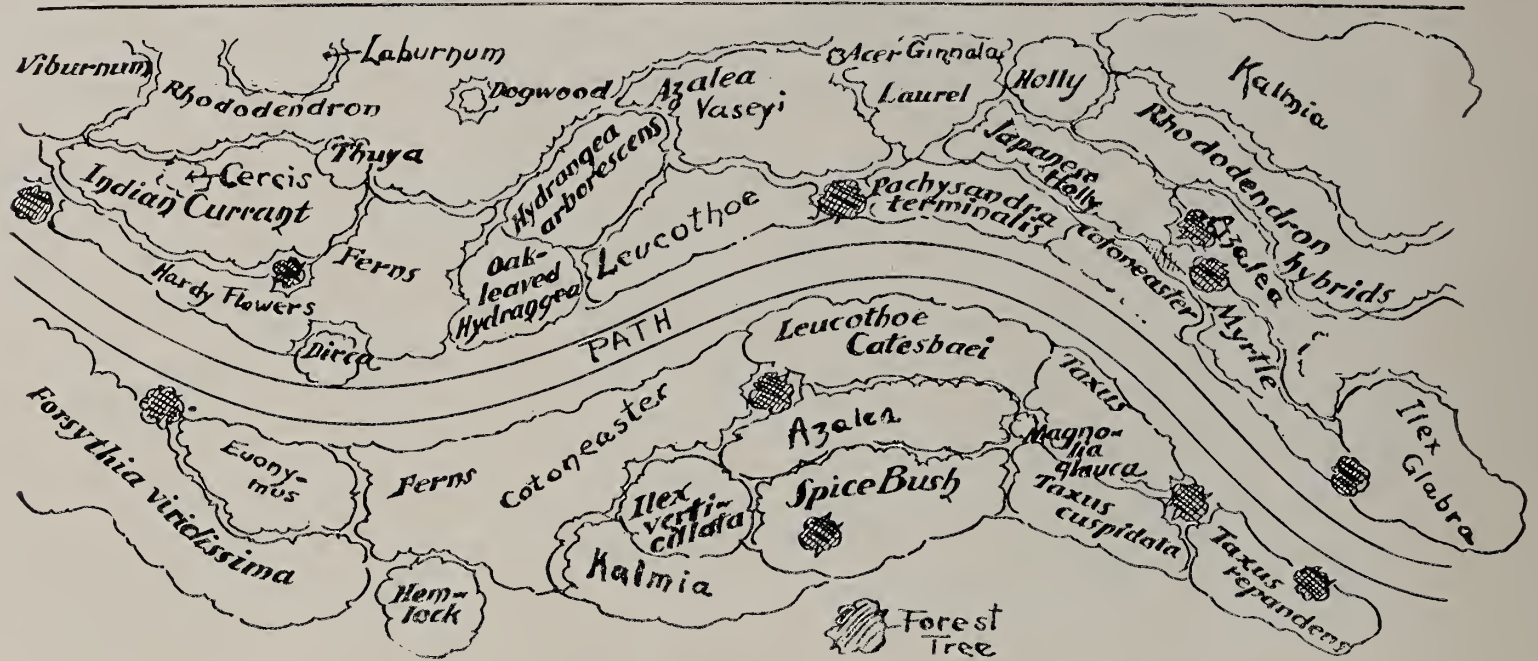 Viburnum
Laburnum
Rhododendron
Dogwood
Azalea
Vaseyi
Acer Ginnala
Laurel
Holly
Kalmia
Thuya
Cercis
Indian Currant
Hydrangea
arborescens
Japanese
Holly
Rhododendron
hybrids
Pachysandra
terminalis
Cotoneaster
Azalea
Myrtle
Ferns
Oak-
leaved
Hydrangea
Leucothoe
Hardy Flowers
Dirca
PATH
Leucothoe
Catesbaei
Taxus
Ilex
Glabra
Forsythia viridissima
Euony-
mus
Ferns
Cotoneaster
Azalea
Magno-
lia
glauca
Ilex
verti-
cillata
Spice Bush
Taxus
cuspidata
Kalmia
Taxus
repandens
Hem-
lock
Forest
Tree